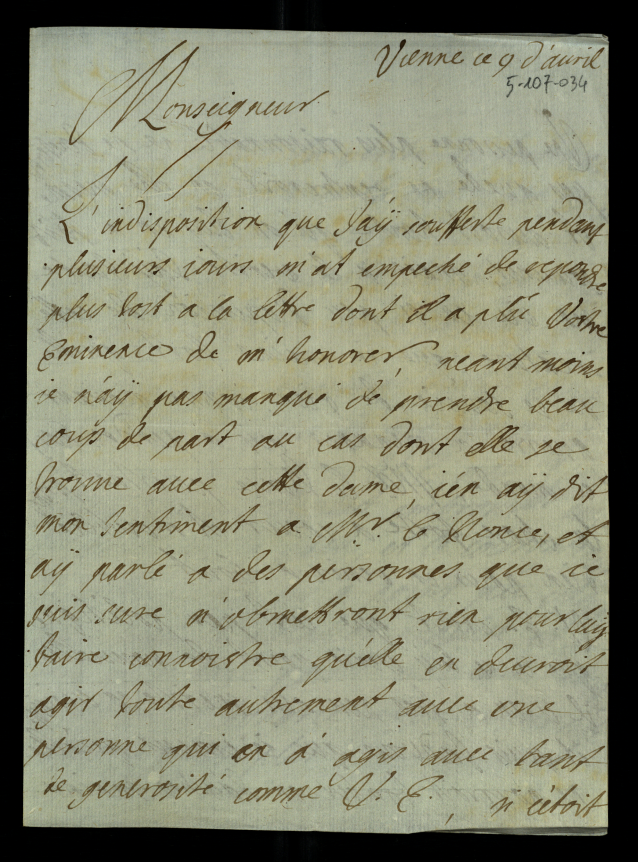 Vienne ce 9 d'avril
5-107-034
Monseigneur
L'indisposition que J'aÿ soufferte pendant
plusieurs iours m'at empeché de repondre
plus tost a la lettre dont il a plû Vostre
Eminence de m'honorer, neant moins
ie n'aÿ pas manqué de prendre beau
coup de part au cas dont elle se
trouue auec cette dame, i'en aÿ dit
mon sentiment a Mr. le Nonce, et
aÿ parlé a des personnes que ie
suis sure n'obmettront rien pour luÿ
faire connoistre qu'elle en deuroit
agir toute autrement auec une
personne qui en a agis auec tant
de generosité comme V. E., n'étoit